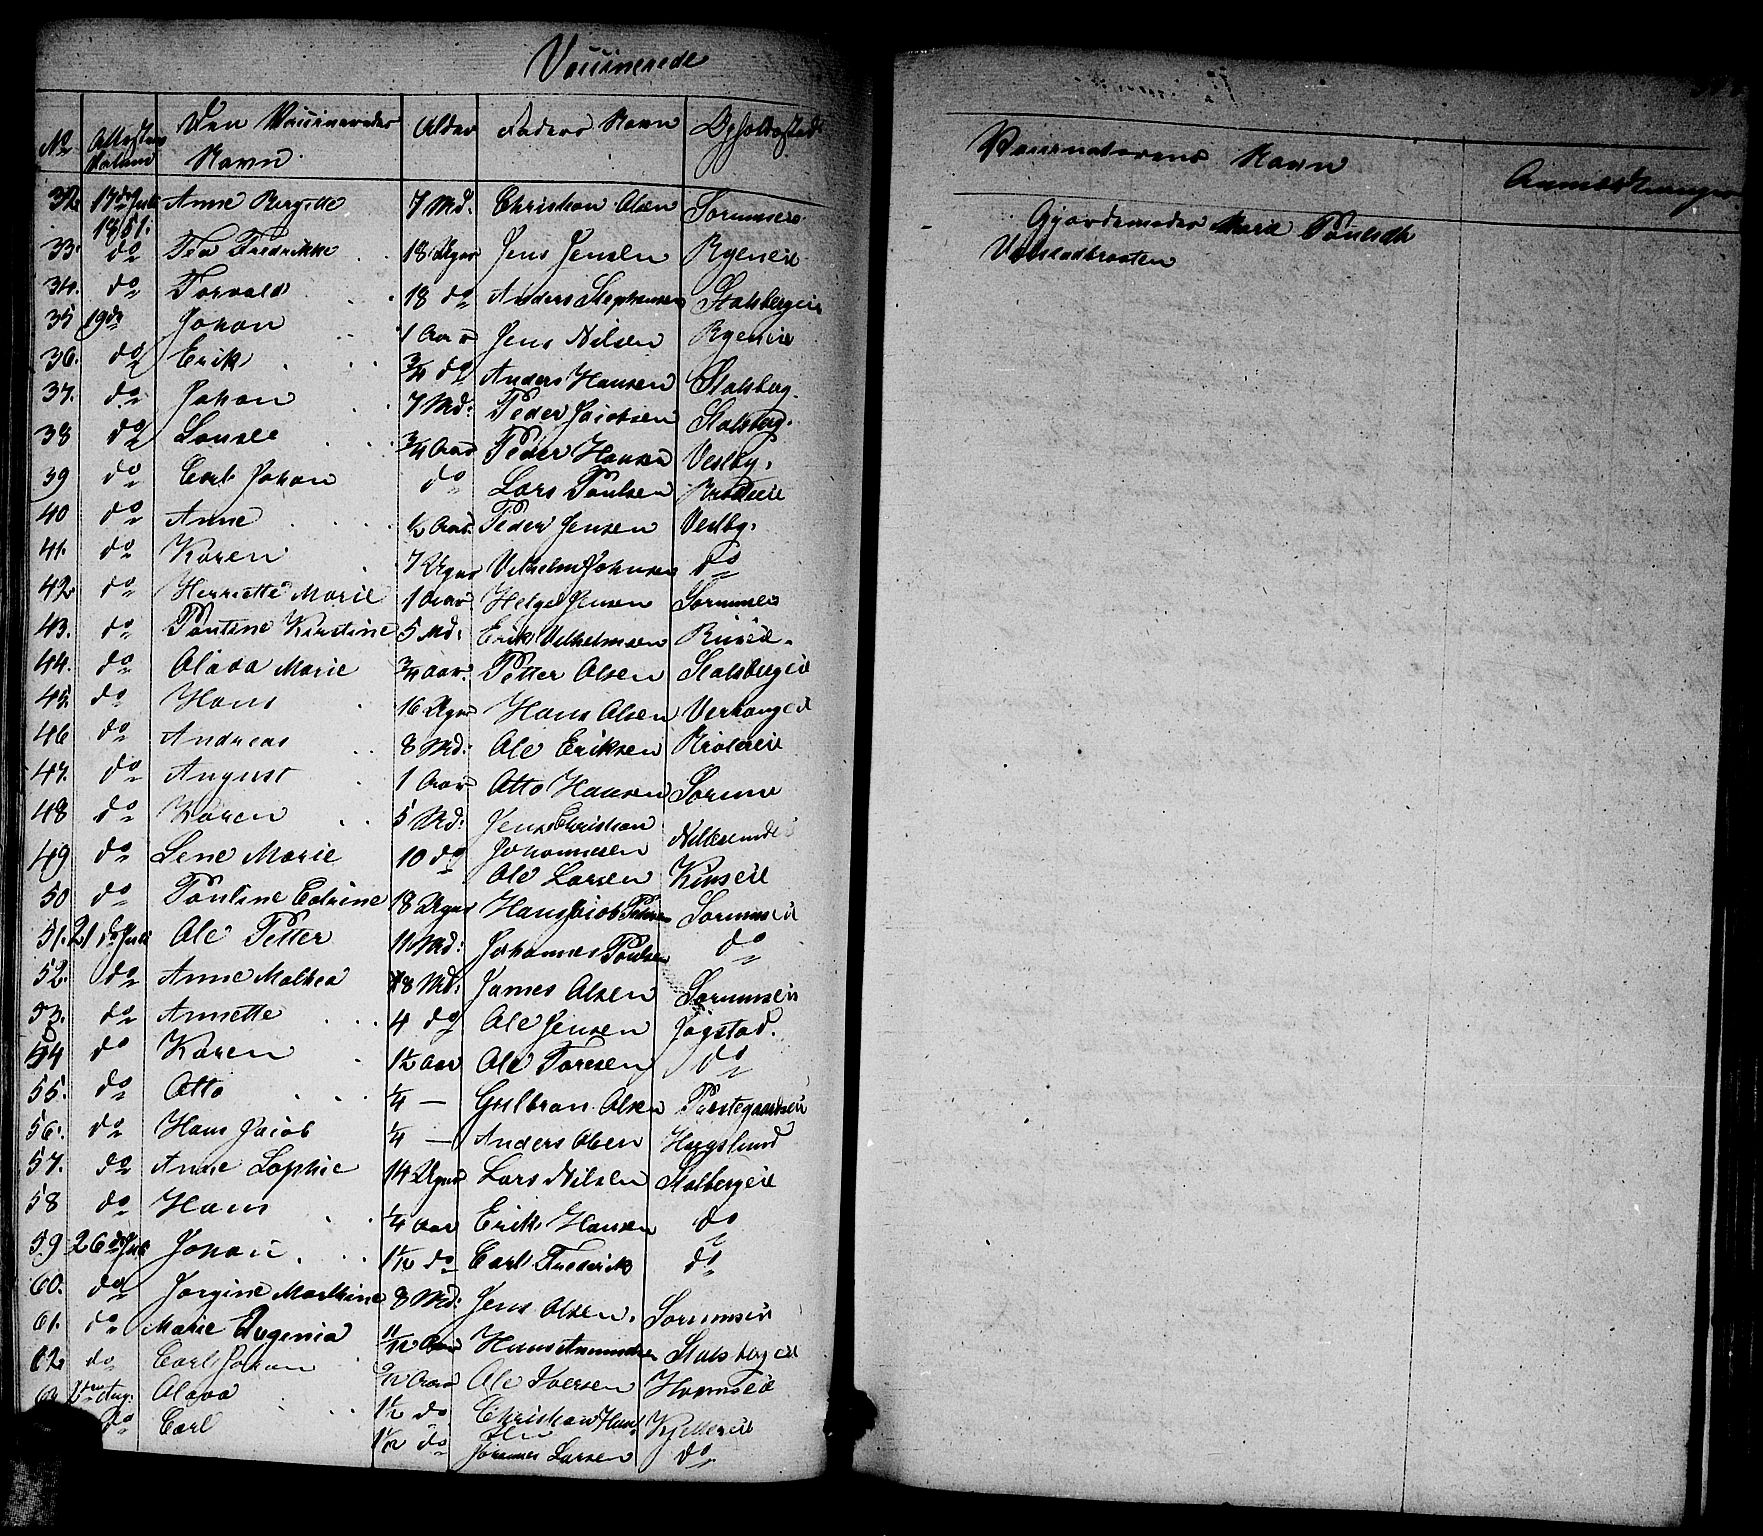 Vaccinerede
No Attestens Datum Den Vaccineredes Navn Alder Faders Navn Opholdssted
32 17de Juli 1851. Anne Birgitte 7 Md. Christian Olsen Sørumseie
33. do Fredrikke 18 Uger Jens Jensen Ryeneie
34. do Torvald 18 do Anders Stephansen Stalsbergeie
35 19de Johan 1 Aar Jens Nilsen Ryeneie
36. do Erik 3/4 do Anders Hansen Stalsberg.
37. do Johan 7 Md: Peder Jacobsen Stalsberg.
38 do Lousee 3/4 Aar Peder Hansen Vestby.
39 do Carl Johan do Lars Poulsen
40 do Anne 1/2 Aar. Peder Jensen Vestby.
41. do Karen 7 Uger Vilhelm Johnsen do
42 do Henriette Marie 1 Aar Helge Jensen Sørumseie
43. do Pouline Kirstine 5 Md: Erik Vilhelmsen
44. do Olava Marie 3/4 Aar. Petter Olsen Stalsbergeie
45 do Hans 16 Uger Hans Olsen
46 do Andreas 8 Md: Ole Eriksen
47. do August 1 Aar Otto Hansen Sørum
48 do Karen 5 Md: Jens Christian Johannesen
49 do Lene Marie 10 do Ole Larsen
50 do Pouline Edvine 18 Uger Hans Jacob Sørumseie
51. 21de Juli Ole Petter 11 Md: Johannes Poulsen do
52. do Anne Mathea 8 Md: James Olsen Sørumseie
53. do Annette 4 do Ole Jensen Jogstad.
54 do Karen 1 1/2 Aar Ole Toresen do
55. do Otto 1/4 — Gulbran Olsen Præstegaardseie
56. do Hans Jacob 1/4 — Anders Olsen Haugslund
57. do Anne Sophie 14 Uger Lars Nilsen Stalbergeie
58 do Hans 1/4 Aar Erik Hansen do
59 26de Juli Johan 1 1/2 do Carl Frederik do
60. do Jørgine Mathine 8 Md: Jens Olsen. Sørumseie
61. do Marie Eugenia 11/12 Aar Hans Amundsen Stalsbergeie
62 do Carl Johan 9/12 Aar Ole Iversen
Aug: Olava 1 1/2 do Christian Hans
do Carl 1 1/2 do Johannes Larsen do
Vaccinatørens Navn Anmærkninger
Gjordemoder Marie Poulsdtr
Valstadbraaten